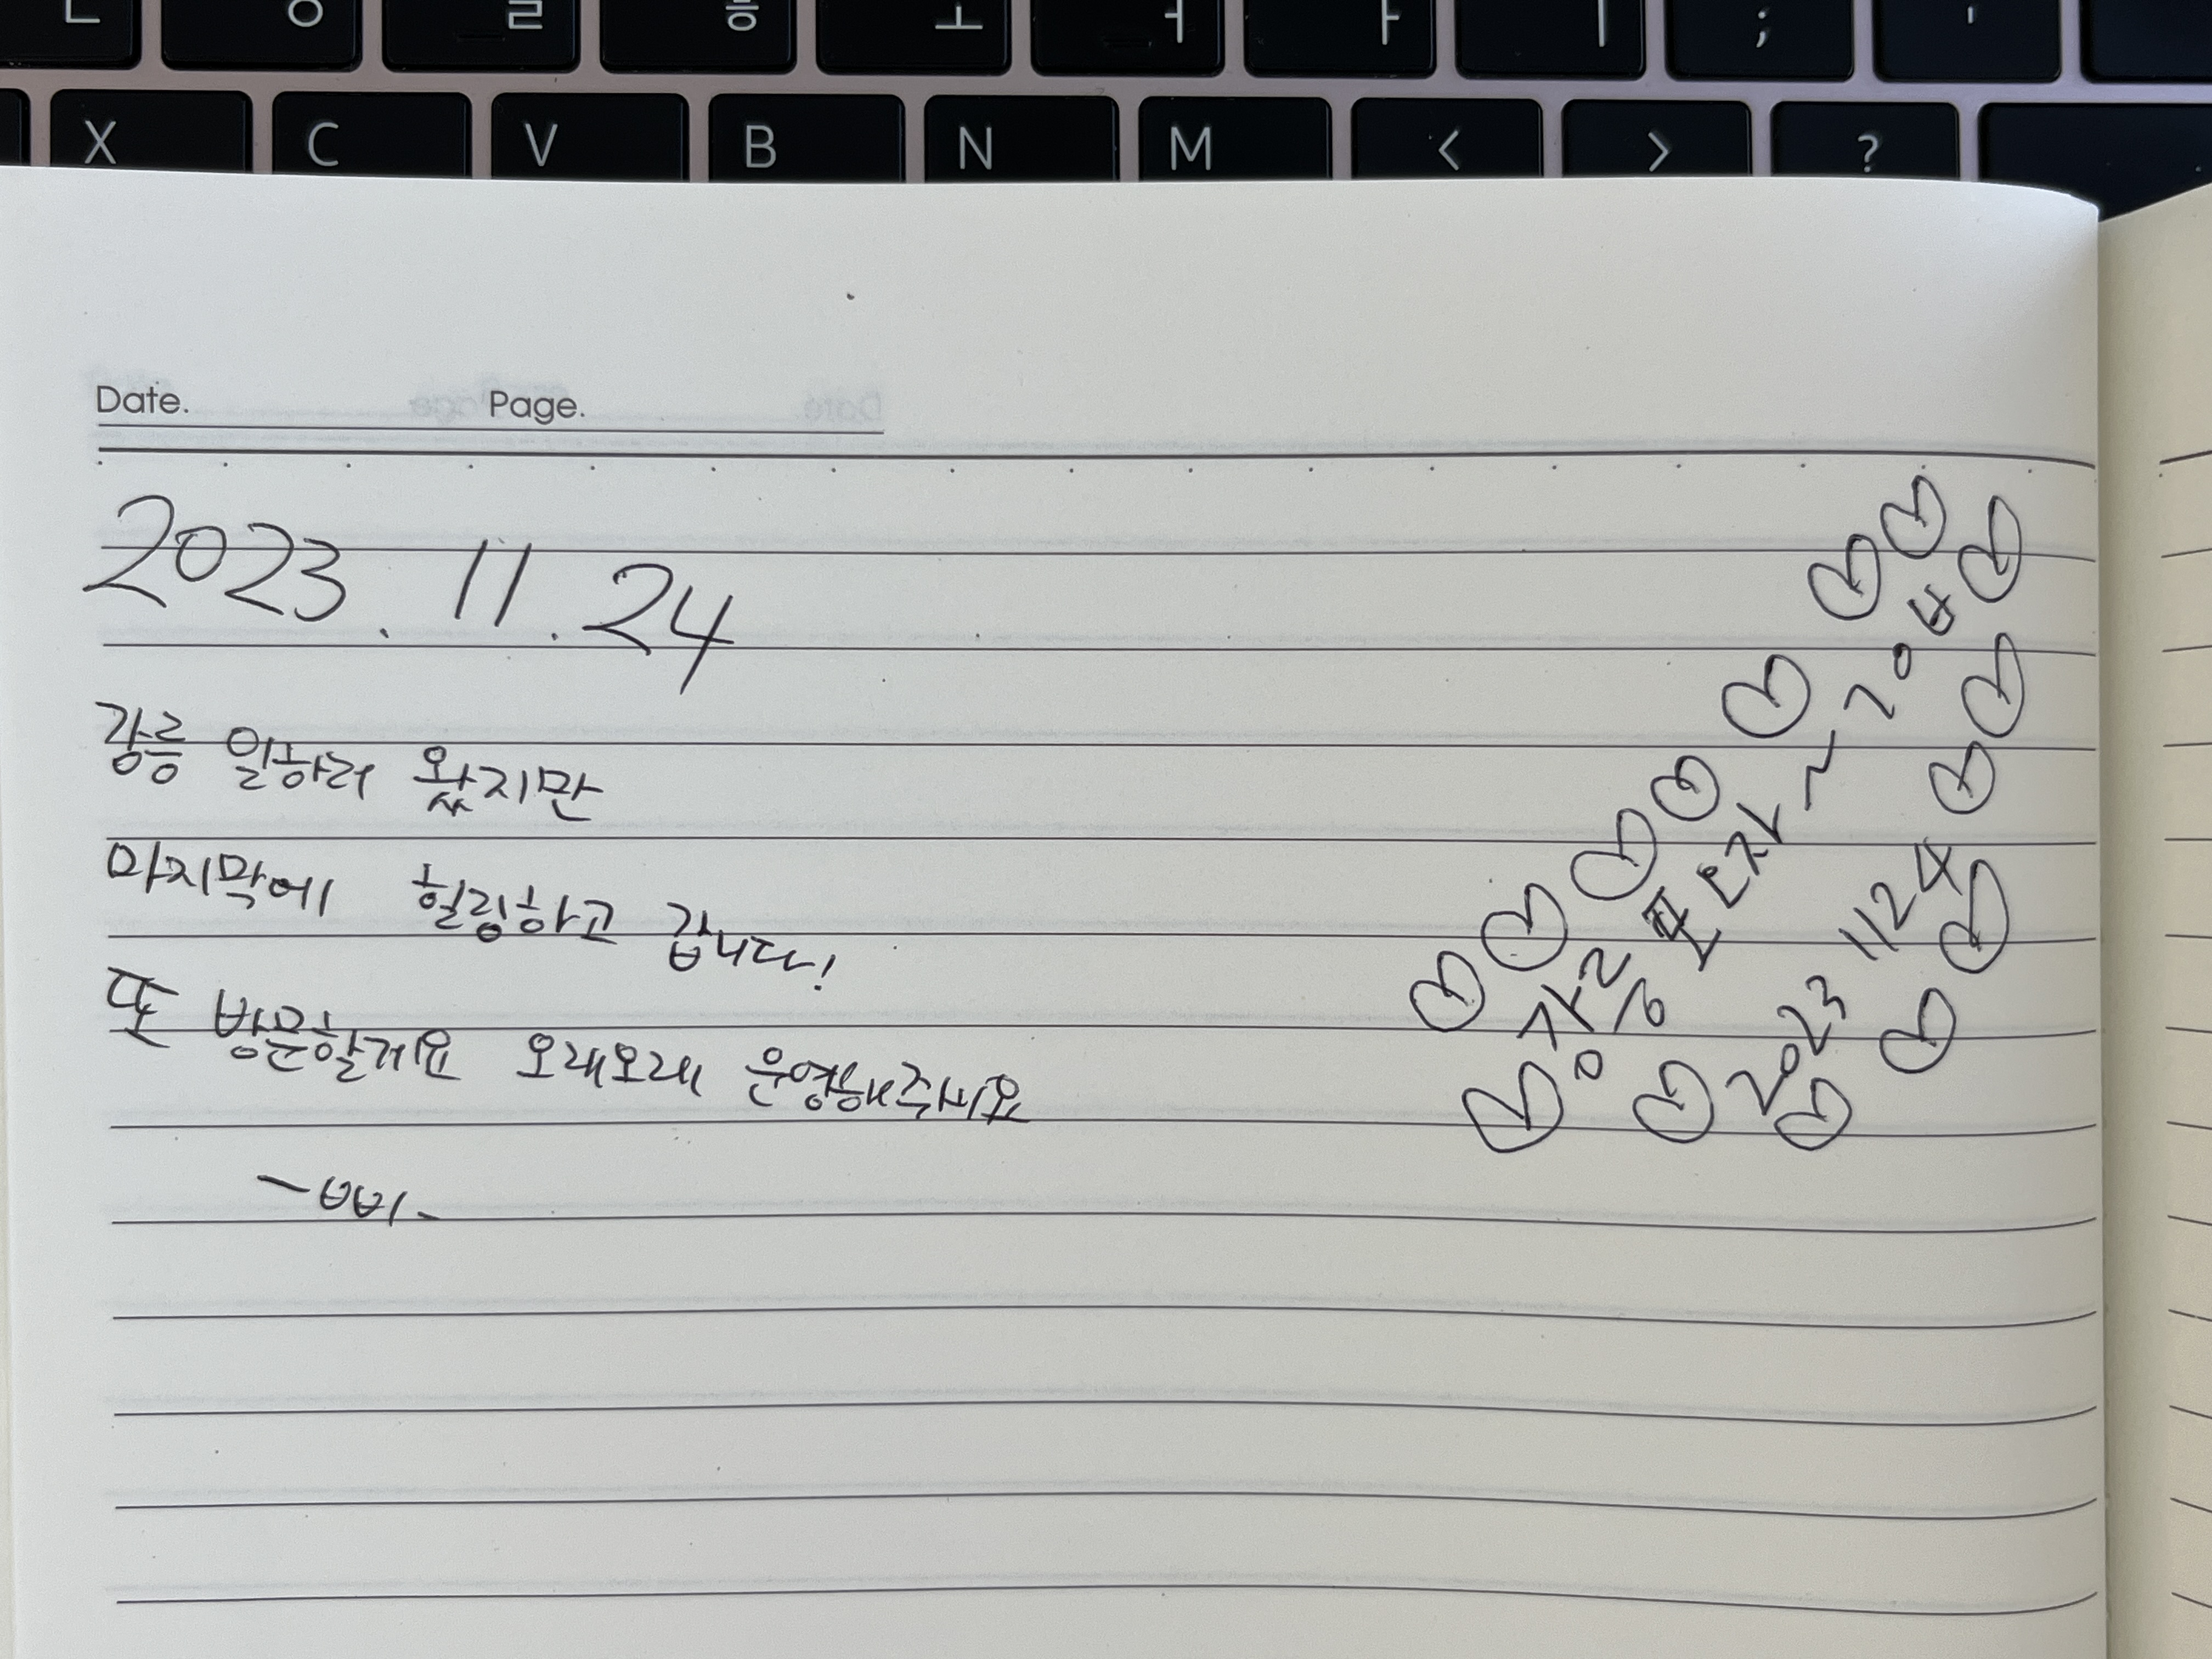 ㄴ ㅇ ㄹ ㅎ ㅗ ㅓ ㅏ ㅣ ; '
X C V B N M < > ?
Date. Page.
2023. 11. 24
강릉 일하러 왔지만
마지막에 힐링하고 갑니다!
또 방문할게요 오래오래 운영해주세요
-삐-
강릉
~ 20
2023 1124